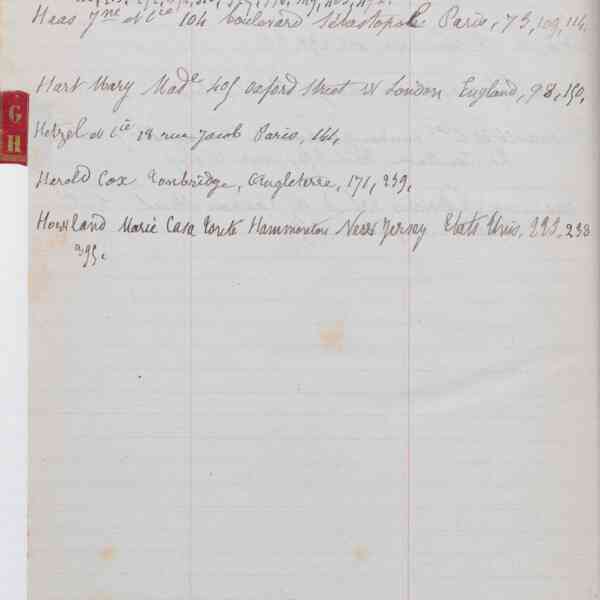 Haas jne et Cie 104 boulevard Sébastopole Paris, 73, 109, 114.
Hart Mary Made 405 oxford street W London England, 98, 150,
G
H
Hetzel et Cie 18 rue Jacob Paris, 144,
Herold Cox Tonbridge, Angleterre, 171, 239,
Howland Marie Casa Tonti Hammonton New Jersey Etats Unis, 223, 238
395.